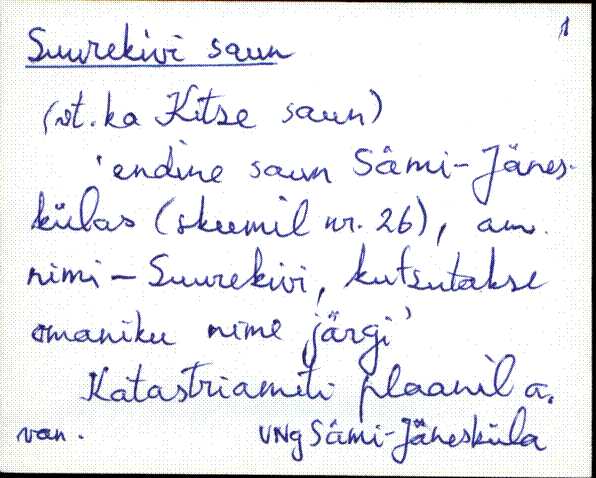 1
Suurekivi saun
(vt. ka Kitse saun)
'endine saun Sämi-Jänes-
külas (skeemil nr. 26), am.
nimi – Suurekivi, kutsutakse
omaniku nime järgi'
Katastriameti plaanil a.
van. VNg Sämi-Jänesküla